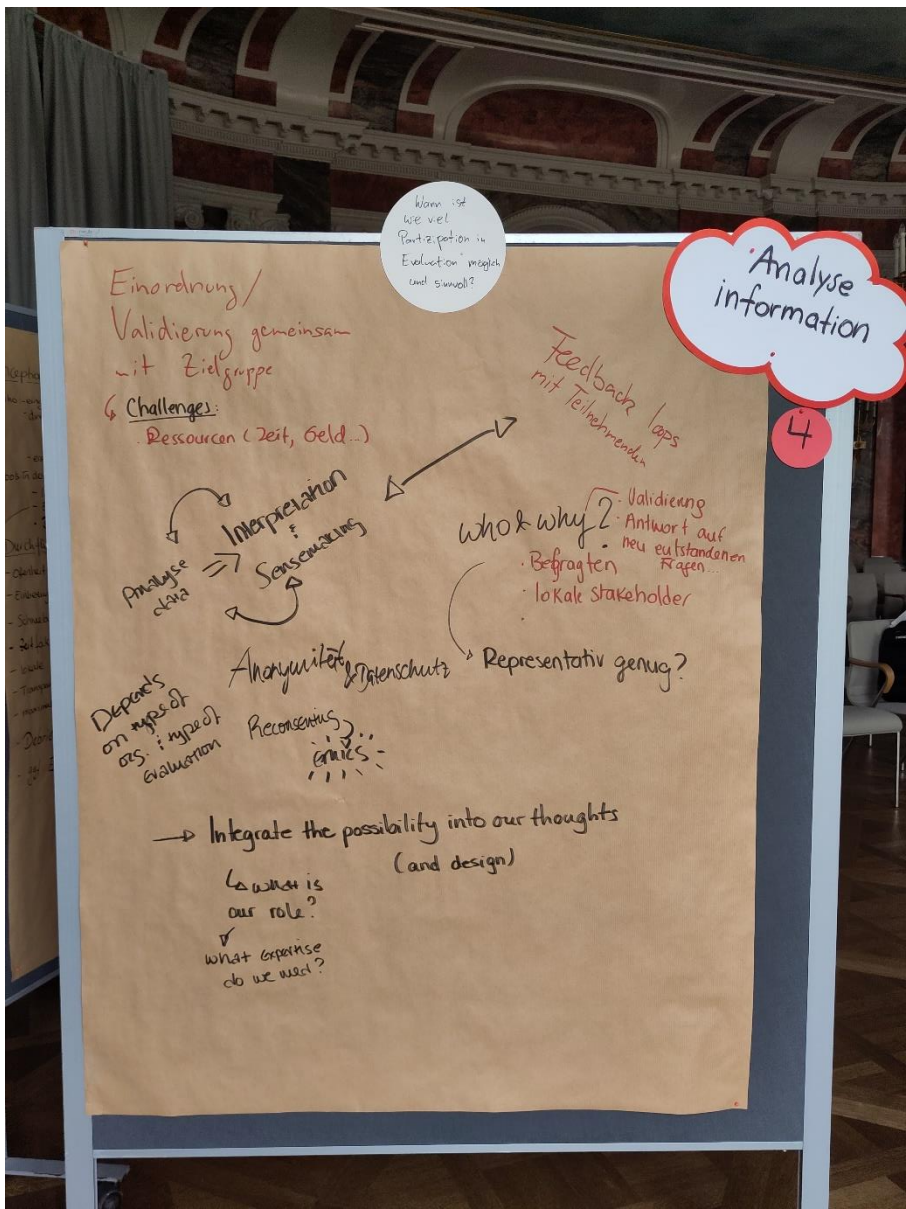 Wann ist
wie viel
Partizipation in
Evaluation möglich
und sinnvoll?
Analyse
information
4
Einordnung/
Validierung gemeinsam
mit Zielgruppe
↳ Challenges:
· Ressourcen (Zeit, Geld...)
Feedback loops
mit Teilnehmenden
Interpretation
&
Sensemaking
Analyse
data
who & why?
· Validierung
· Antwort auf
neu entstandenen
Fragen...
· Befragten
· lokale Stakeholder
Representativ genug?
Anonymität
& Datenschutz
Depends
on type of
org. & type of
evaluation
Reconsenting
Ethics
→ Integrate the possibility into our thoughts
(and design)
↳ what is
our role?
what expertise
do we need?